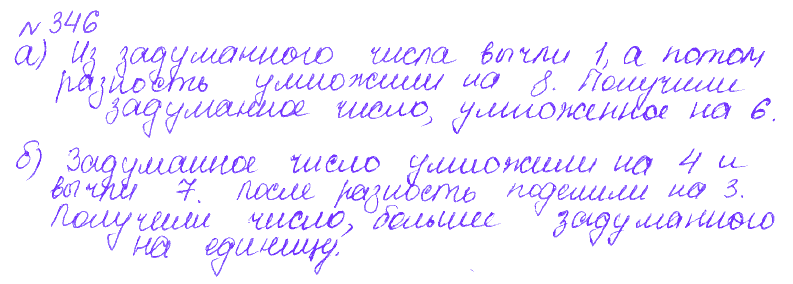 № 346
а) Из задуманного числа вычли 1, а потом
разность умножили на 8. Получили
задуманное число, умноженное на 6.
б) Задуманное число умножили на 4 и
вычли 7. После разность поделили на 3.
Получили число, больше задуманного
на единицу.